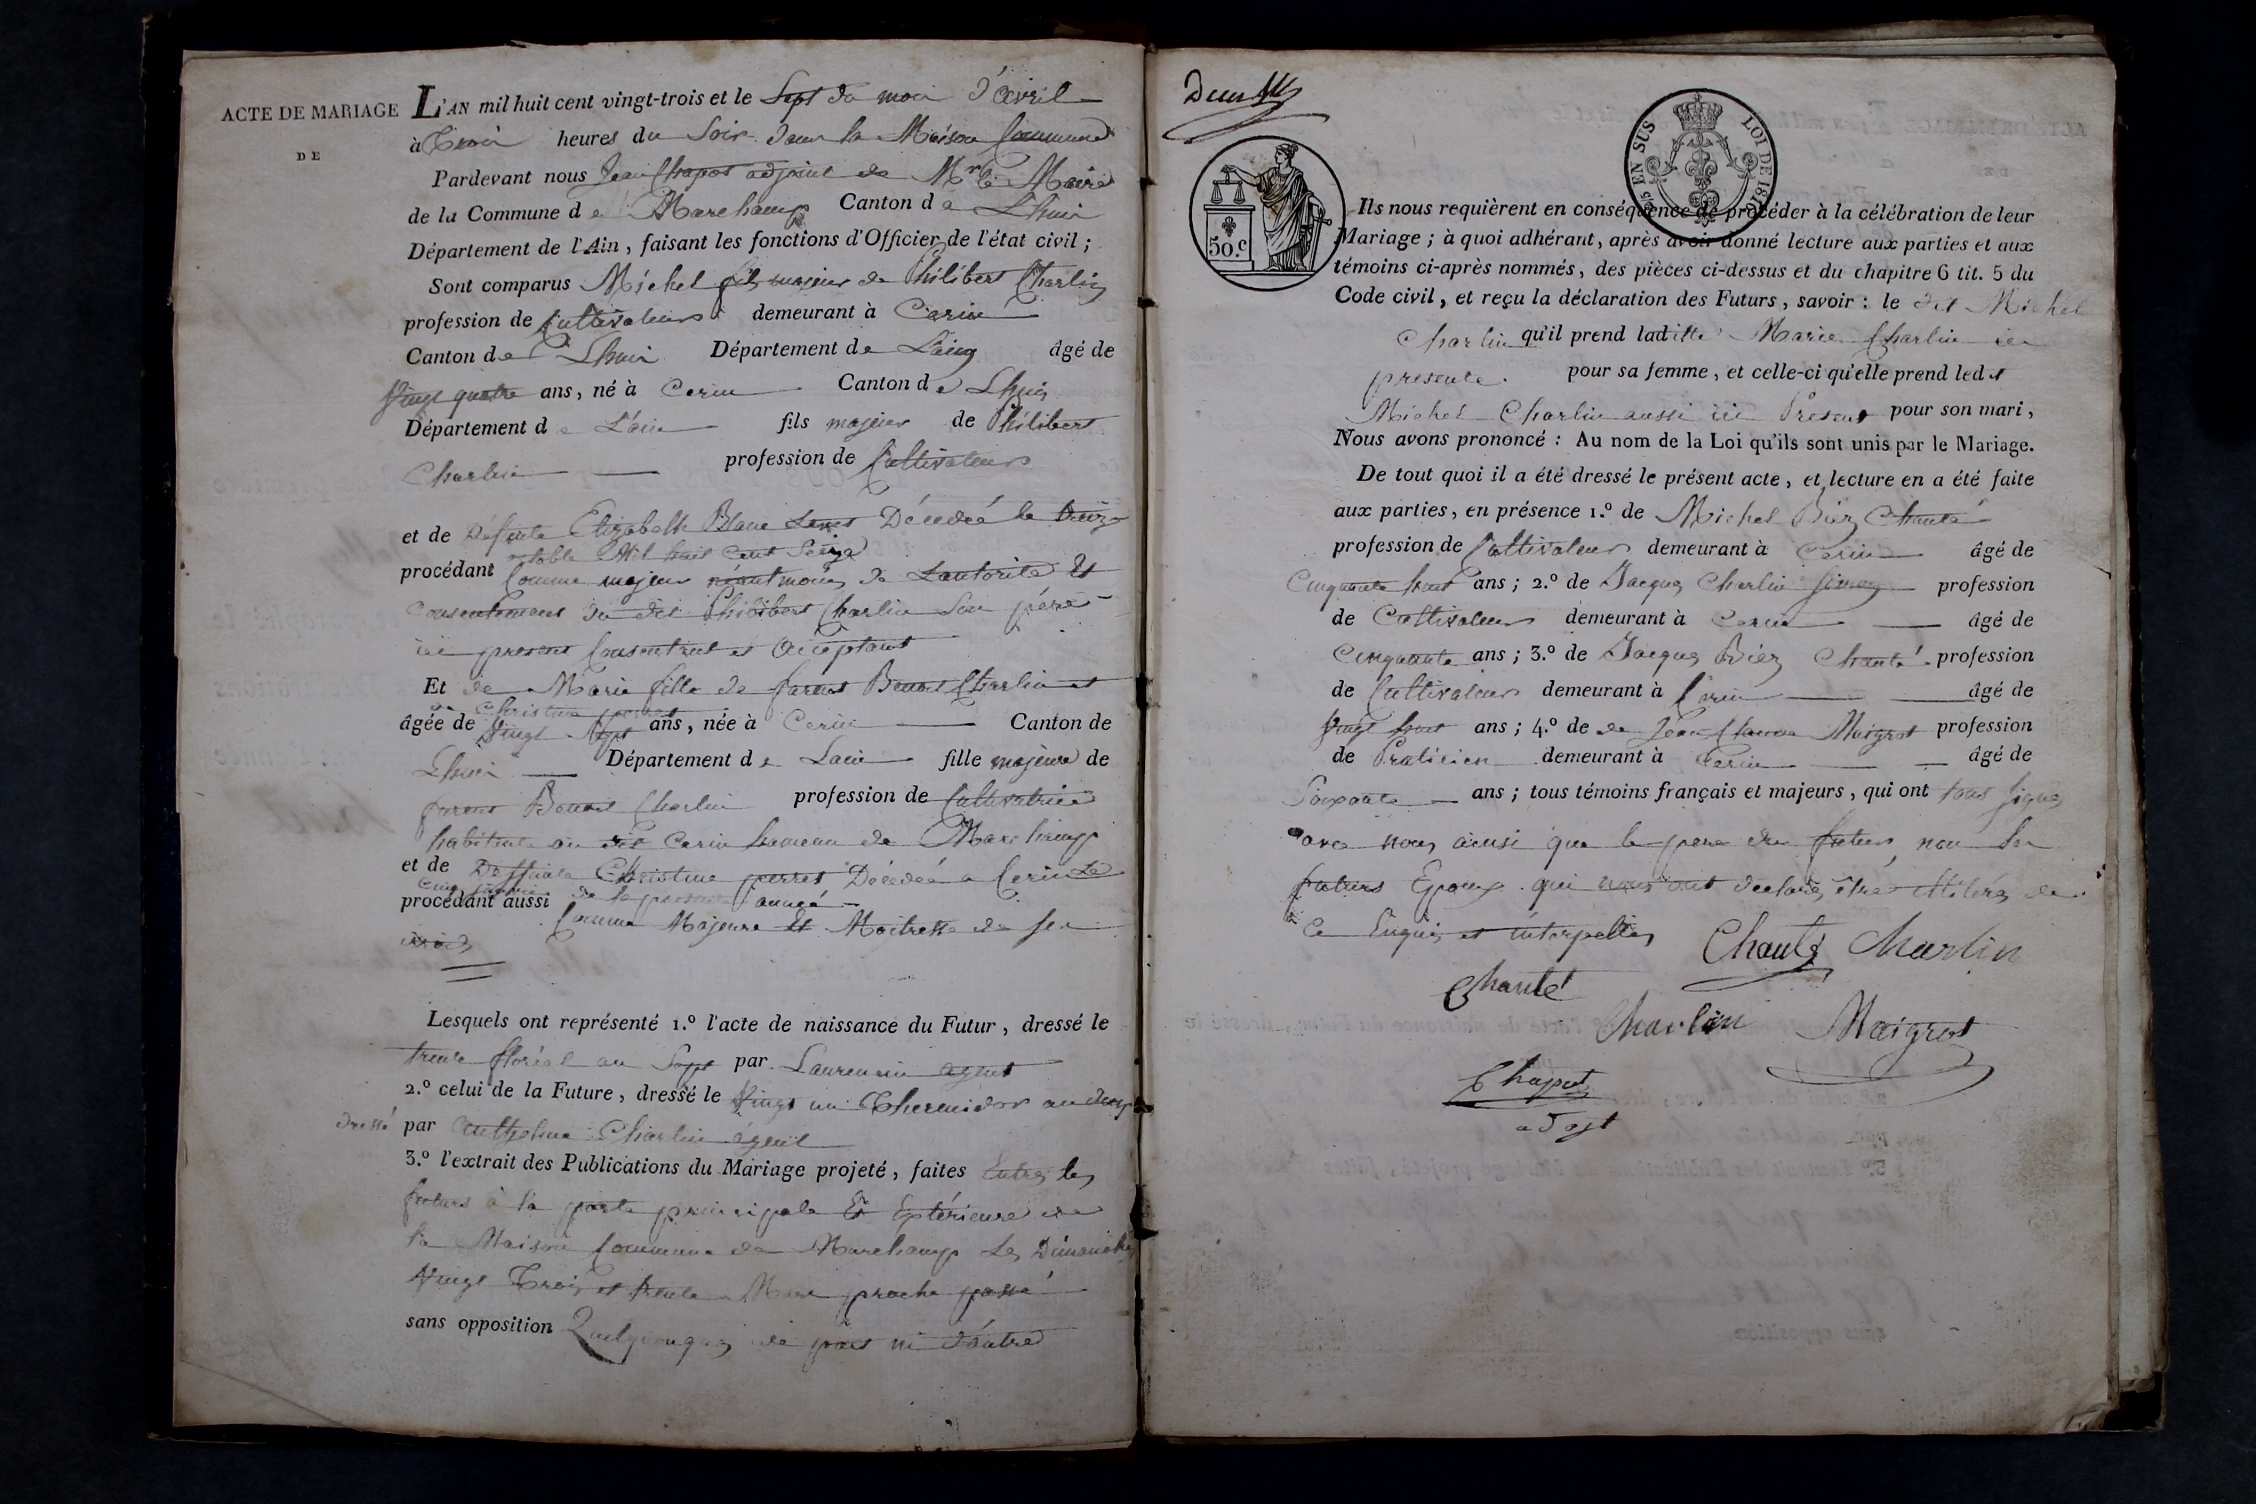 ACTE DE MARIAGE
DE
L'AN mil huit cent vingt-trois et le Sept du mois d'avril
à Trois heures du Soir dans la Maison Commune
Pardevant nous Jean Chapot adjoint de Mr le Maire
de la Commune de Marchamp Canton de Lhuis
Département de l'Ain, faisant les fonctions d'Officier de l'état civil ;
Sont comparus Michel fils majeur de Philibert Charlin
profession de Cultivateur demeurant à Cerin
Canton de Lhuis Département de L'ain âgé de
Vingt quatre ans, né à Cerin Canton de Lhuis
Département de L'ain fils majeur de Philibert
Charlin profession de Cultivateur
et de Défunte Elizabeth Blanc Décédée le treize
octobre Mil huit Cent Seize
procédant Comme majeur néantmoins de Lautorité Et
Consentement du dit Philibert Charlin Son père
ici present Consentant et acceptant
Et de Marie fille de Benoit Charlin et
de Christine perret
âgée de Vingt Sept ans, née à Cerin Canton de
Lhuis Département de Lain fille majeure de
Benoit Charlin profession de Cultivatrice
habitante au dit Cerin hameau de Marchamp
et de Deffunte Christine perret Décédée a Cerin Le
cinq de la presente année
procédant aussi Comme Majeure Et Maitresse de ses
droits
Lesquels ont représenté 1.º l'acte de naissance du Futur, dressé le
treize floréal an Sept par Laurencin agent
2.º celui de la Future, dressé le Vingt un Thermidor an
dressé par Anthelme Charlin agent
3.º l'extrait des Publications du Mariage projeté, faites Entre les
futurs à la porte principale Et Extérieure de
la Maison Commune de Marchamp Les Dimanches
Vingt Trois et trente Mars proche passé
sans opposition Quelquonques de part ni d'autre
50.c
EN SUS
LOI DE
Ils nous requièrent en conséquence de procéder à la célébration de leur
Mariage ; à quoi adhérant, après avoir donné lecture aux parties et aux
témoins ci-après nommés, des pièces ci-dessus et du chapitre 6 tit. 5 du
Code civil, et reçu la déclaration des Futurs, savoir : le dit Michel
Charlin qu'il prend laditte Marie Charlin ici
presente pour sa femme, et celle-ci qu'elle prend ledit
Michel Charlin aussi ici Present pour son mari,
Nous avons prononcé : Au nom de la Loi qu'ils sont unis par le Mariage.
De tout quoi il a été dressé le présent acte, et lecture en a été faite
aux parties, en présence 1.º de Michel Chanté
profession de Cultivateur demeurant à Cerin âgé de
Cinquante huit ans ; 2.º de Jacques Charlin profession
de Cultivateur demeurant à Cerin âgé de
Cinquante ans ; 3.º de Jacques Chanté profession
de Cultivateur demeurant à Cerin âgé de
Vingt huit ans ; 4.º de de Jean Claude Maigrot profession
de Praticien demeurant à Cerin âgé de
Soixante ans ; tous témoins français et majeurs, qui ont tous signés
avec nous ainsi que le pere du futur, non les
futurs Epoux qui nous ont declarés être illitérés de
ce Enquis et interpellés
Chanté Charlin
Chanté
Charlin Maigrot
Chapot
adojt